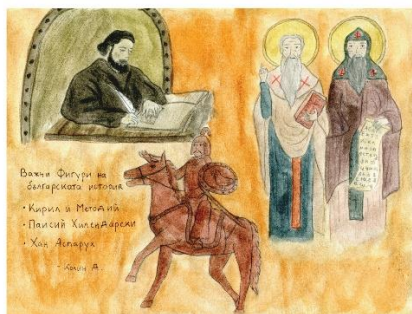 Важни Фигури на
българската история
• Кирил и Методий
• Паисий Хилендарски
• Хан Аспарух
- Калин А.